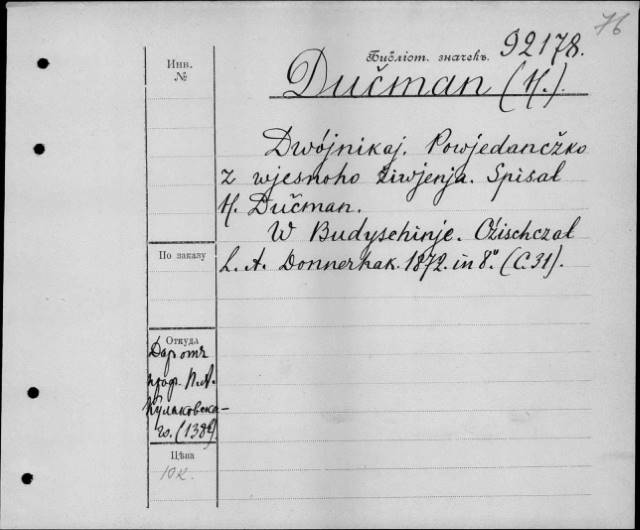 76
Инв.
№
Библіот. значекъ. 92178.
Dučman (H.).
Dwójnikaj. Powjedančko
z wjesnoho žiwjenja. Spisal
H. Dučman.
W Budyschinje. Ćišćzał
L. A. Donnerhak. 1872. in 8°. (C. 31).
По заказу
Откуда
Даръ отъ
проф. П. А.
Кулаковска-
го. (1389)
Цѣна
10 к.